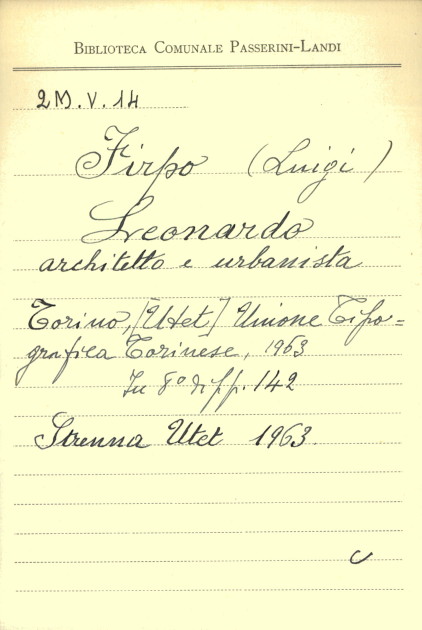 Biblioteca Comunale Passerini-Landi
2M.V.14
Firpo (Luigi)
Leonardo
architetto e urbanista
Torino, [Utet] Unione Tipo=
grafica Torinese, 1963
In 8° di pp. 142
Strenna Utet 1963.
C